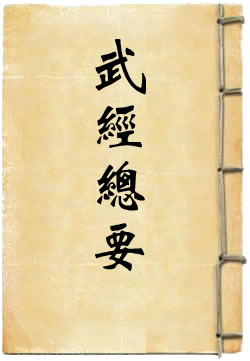 武經總要